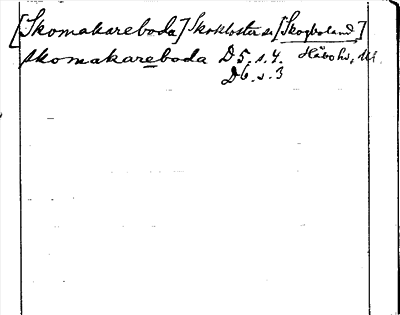 [Skomakareboda] Skokloster sn [Skogboland]
skomakareboda D5. s. 4. Håbo hd, Upl.
D6. s. 3